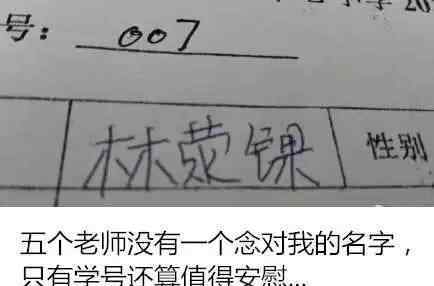 20
号： 007
林荧锞 性别
五个老师没有一个念对我的名字，
只有学号还算值得安慰...